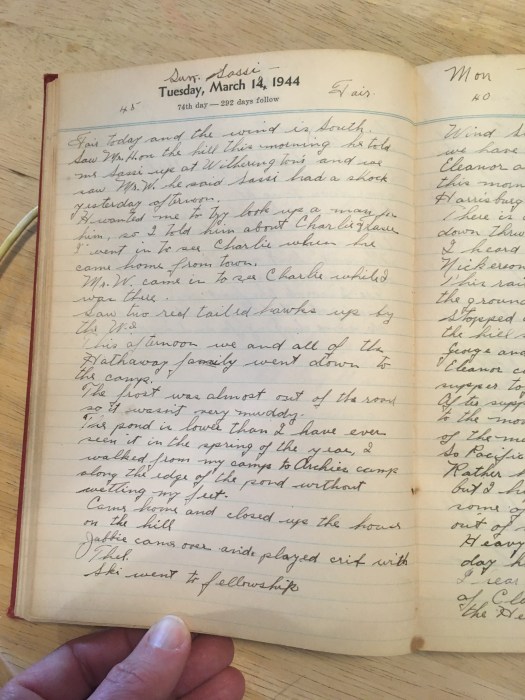 Sun. Sassi
Tuesday, March 14, 1944
45
74th day — 292 days follow
Fair.
Fair today and the wind is South.
Saw Mr. H on the hill this morning he told
me Sassi up at Witherington's and we
saw Mr. W. he said Sassi had a shock
yesterday afternoon.
H wanted me to try look up a man for
him, so I told him about Charlie
I went in to see Charlie when he
came home from town.
Mr. W. came in to see Charlie while I
was there.
Saw two red tailed hawks up by
the W.s
This afternoon we and all of the
Hathaway family went down to
the camps.
The frost was almost out of the road
so it wasn't very muddy.
The pond is lower than I have ever
seen it in the spring of the year, I
walked from my camp to Archies camp
along the edge of the pond without
wetting my feet.
Came home and closed up the house
on the hill
Jabbie came over and played crib with
Thel.
Ski went to fellowship
Mon
40
Wind S
we have
Eleanor a
this morn
Harrisburg
There is
down throu
I heard
Nickerson
This rai
the groun
Stopped
the hill
George and
Eleanor c
supper to
After supp
to the mo
of the m
So Pacific
Rather
but I h
some o
out of
Heavy
day h
I hear
of Cl
the He